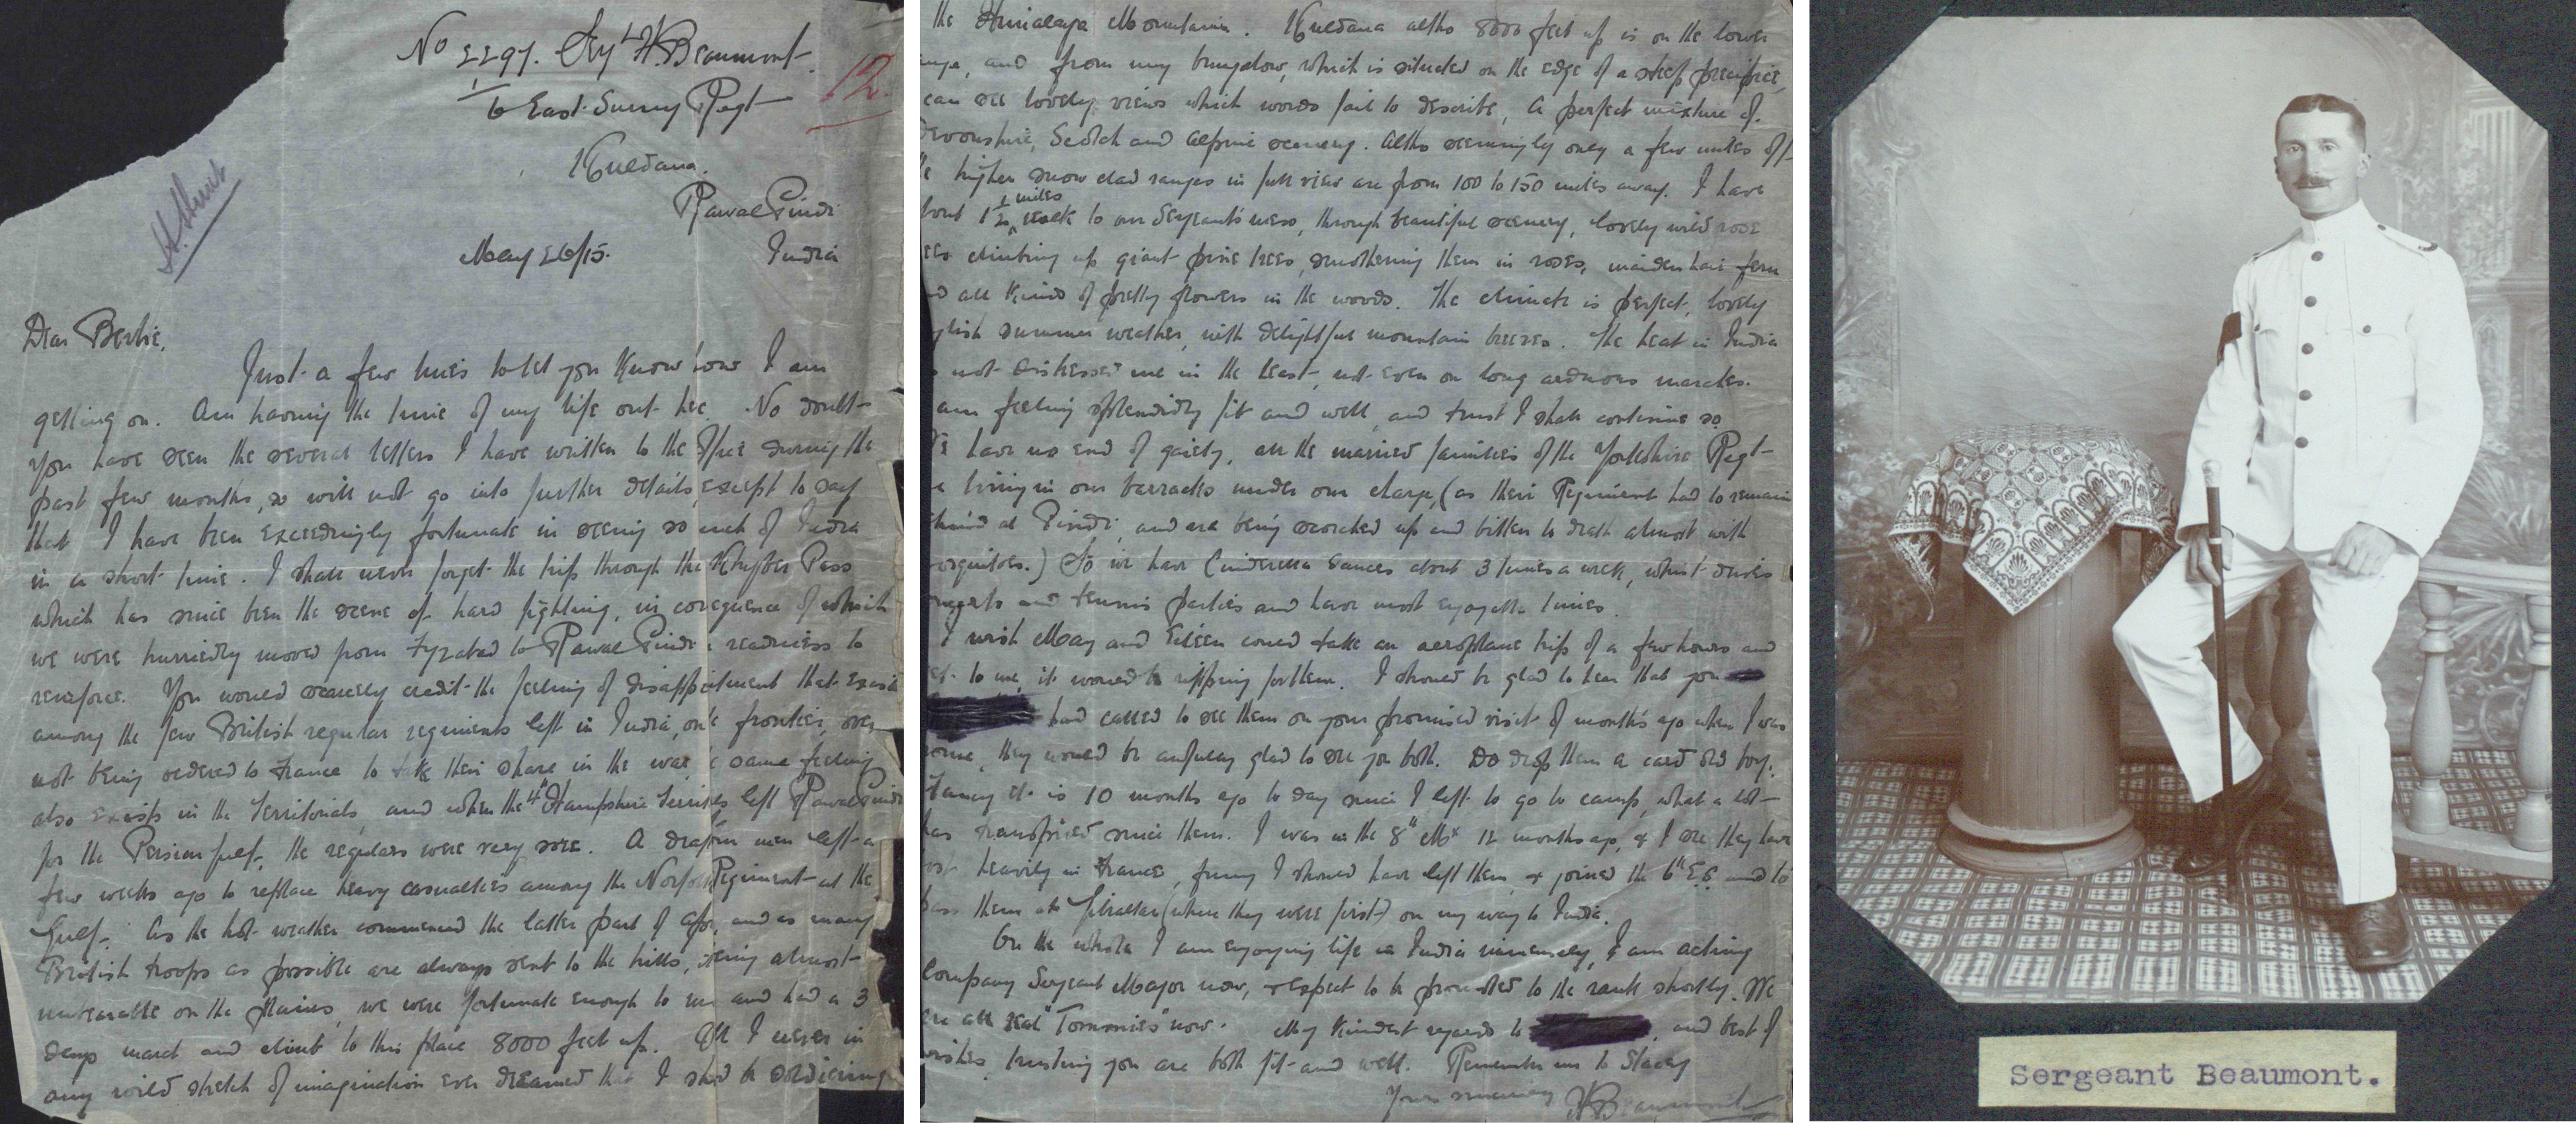 No 2297. Sgt H. Beaumont.
1/6 East Surrey Regt
12.
Kuldana.
Rawal Pindi
India
May 26/15.
H. Hunt
Dear Bertie,
Just a few lines to let you know how I am
getting on. Am having the time of my life out here. No doubt
you have seen the several letters I have written to the Office during the
past few months, so will not go into further details, except to say
that I have been exceedingly fortunate in seeing so much of India
in a short time. I shall never forget the trip through the Khyber Pass
which has since been the scene of hard fighting, in consequence of which
we were hurriedly moved from Fyzabad to Rawal Pindi in readiness to
reinforce. You would scarcely credit the feeling of disappointment that exists
among the few British regular regiments left in India, on frontier, over
not being ordered to France to take their share in the war, same feeling
also exists in the Territorials, and when the 4th Hampshire Terriers left Rawal Pindi
for the Persian Gulf, the regulars were very sore. A draft men left a
few weeks ago to replace heavy casualties among the Norfolk Regiment at the
Gulf. As the hot weather commenced the latter part of Apr, and as many
British troops as possible are always sent to the hills, being almost
unbearable on the plains, we were fortunate enough to and had a 3
days march and climb to this place 8000 feet up. I never in
any wild stretch of imagination ever dreamed that I shd be soldiering
the Himalaya Mountains. Kuldana altho 8000 feet up is on the lower
and from my bungalow, which is situated on the edge of a steep precipice,
can see lovely views which words fail to describe, a perfect mixture of
Devonshire, Scotch and Alpine scenery. Altho seemingly only a few miles off
higher snow clad ranges in full view are from 100 to 150 miles away. I have
about 1 1/2 miles walk to our Sergeants mess, through beautiful scenery, lovely wild rose
climbing up giant pine trees, smothering them in roses, maiden hair fern
and all kinds of pretty flowers in the woods. The climate is perfect, lovely
English summer weather, with delightful mountain breezes. The heat in India
not distressed me in the least, not even on long arduous marches.
am feeling splendidly fit and well, and trust I shall continue so.
have no end of gaiety, all the married families of the Yorkshire Regt
living in our barracks under our charge, (as their Regiment had to remain
behind at Pindi, and are being scorched up and bitten to death almost with
mosquitoes.) So we have Cinderella dances about 3 times a week, whist drives
concerts and tennis parties and have most enjoyable times.
I wish May and Eileen could take an aeroplane trip of a few hours and
to me, it would be ripping for them. I should be glad to hear that you
had called to see them on your promised visit of months ago when I was
home, they would be awfully glad to see you both. Do drop them a card old boy.
Fancy it is 10 months ago to day since I left to go to camp, what a lot
has transpired since then. I was in the 8th Mx 12 months ago, & I see they have
lost heavily in France, funny I should have left them & joined the 6th E.S. and to
pass them at Gibraltar (where they were first) on my way to India.
On the whole I am enjoying life in India immensely, I am acting
Company Sergeant Major now, & expect to be promoted to the rank shortly. We
are all real "Tommies" now. My kindest regards to , and best of
wishes, trusting you are both fit and well. Remember me to Stacey
Yours sincerely H Beaumont
Sergeant Beaumont.